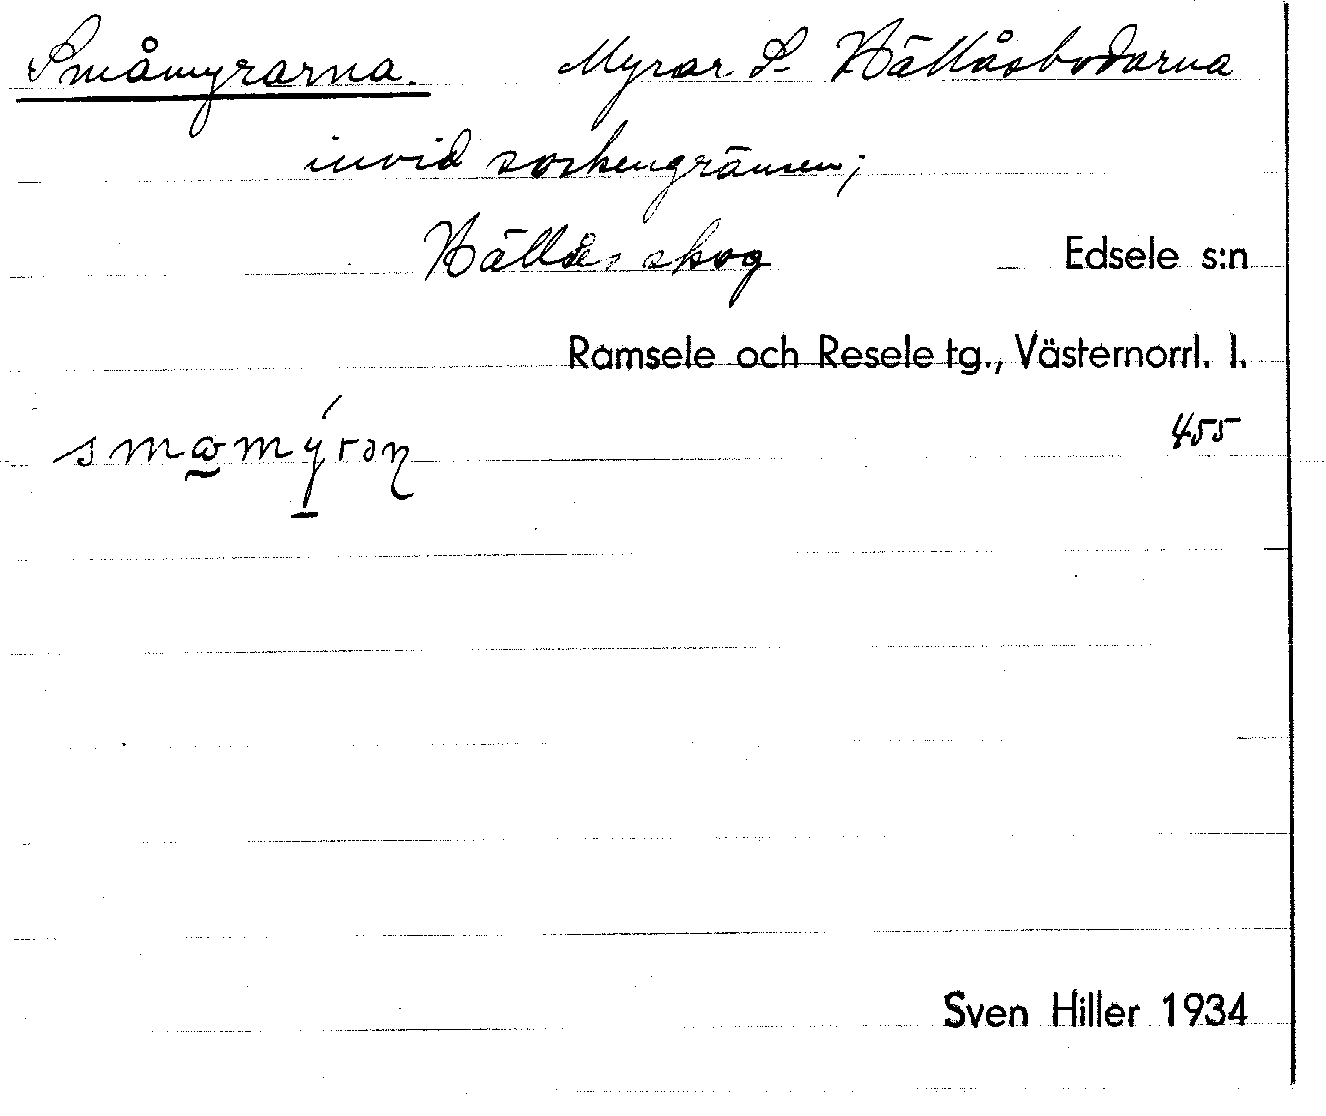 Småmyrarna. Myrar S. Hällåsbodarna
invid sockengränsen;
Hällås skog Edsele s:n
Ramsele och Resele tg., Västernorrl. l.
455
Sven Hiller 1934